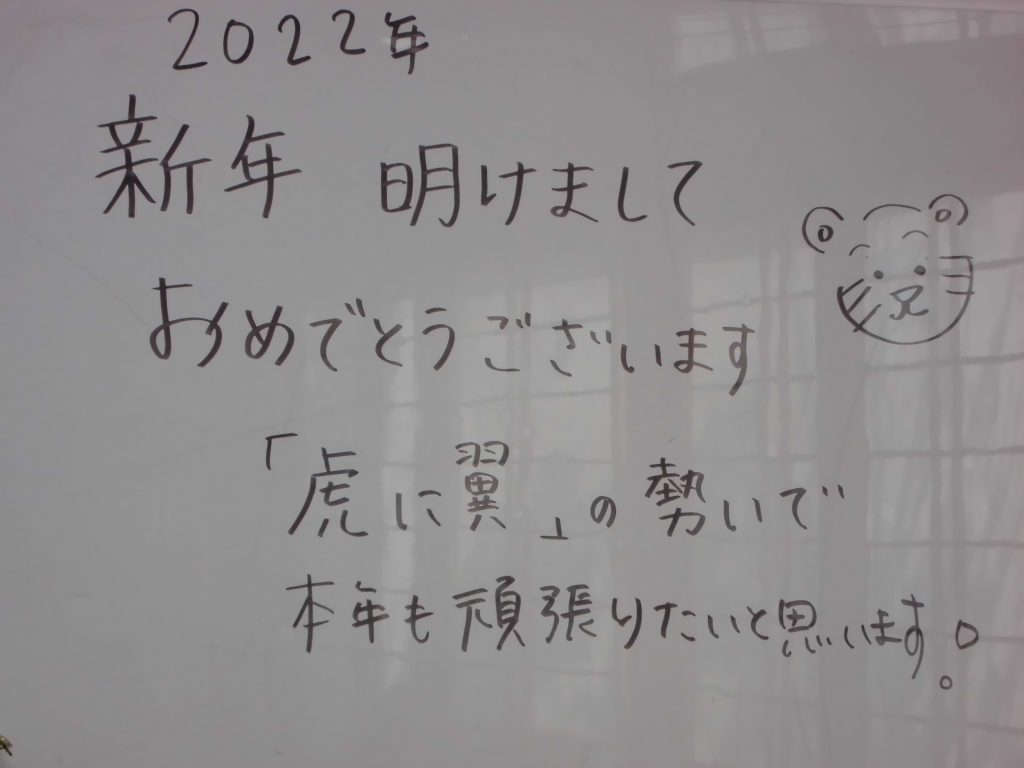 2022年
新年 明けまして
おめでとうございます
「虎に翼」の勢いで
本年も頑張りたいと思います。